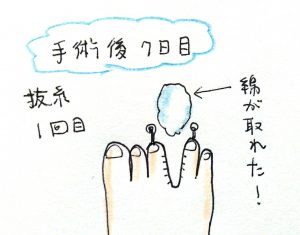 手術後7日目
抜糸
1回目
綿が取れた!